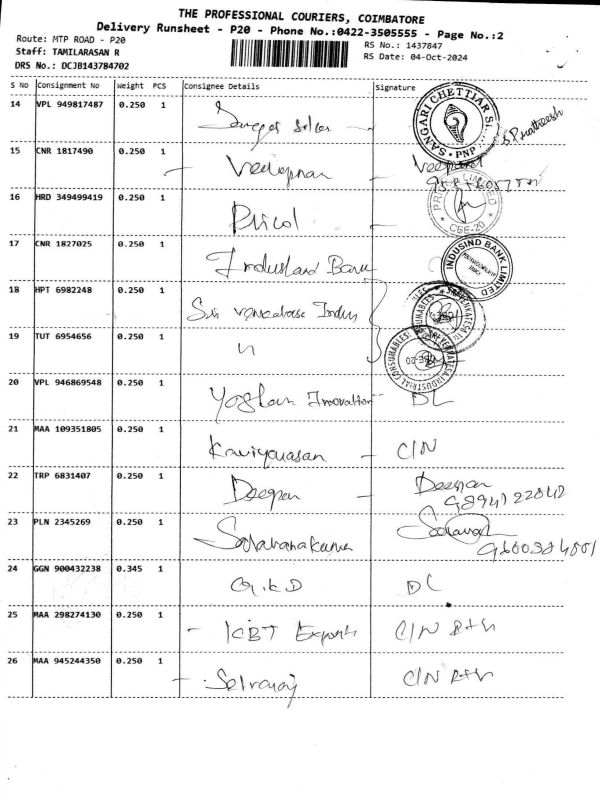 THE PROFESSIONAL COURIERS, COIMBATORE
Delivery Runsheet - P20 - Phone No.:0422-3505555 - Page No.:2
Route: MTP ROAD - P20
RS No.: 1437847
Staff: TAMILARASAN R
RS Date: 04-Oct-2024
DRS No.: DCJB143784702
S No Consignment No Weight PCS Consignee Details Signature
14 VPL 949817487 0.250 1
SANGARI CHETTIAR
PNP
15 CNR 1817490 0.250 1
16 HRD 349499419 0.250 1 Pricol
LIMITED
CBE-20
17 CNR 1827025 0.250 1
INDUSIND BANK LIMITED
18 HPT 6982248 0.250 1 Sri
19 TUT 6954656 0.250 1 "
INDUSTRIAL CONSUMABLES
20 VPL 946869548 0.250 1 DL
21 MAA 109351805 0.250 1 - C/N
22 TRP 6831407 0.250 1 Deepan - Deepan
9894122842
23 PLN 2345269 0.250 1 Saravanakumar
24 GGN 900432238 0.345 1 G.K.D DL
25 MAA 298274130 0.250 1 - KBT Exports C/N
26 MAA 945244350 0.250 1 - Selvaraj C/N